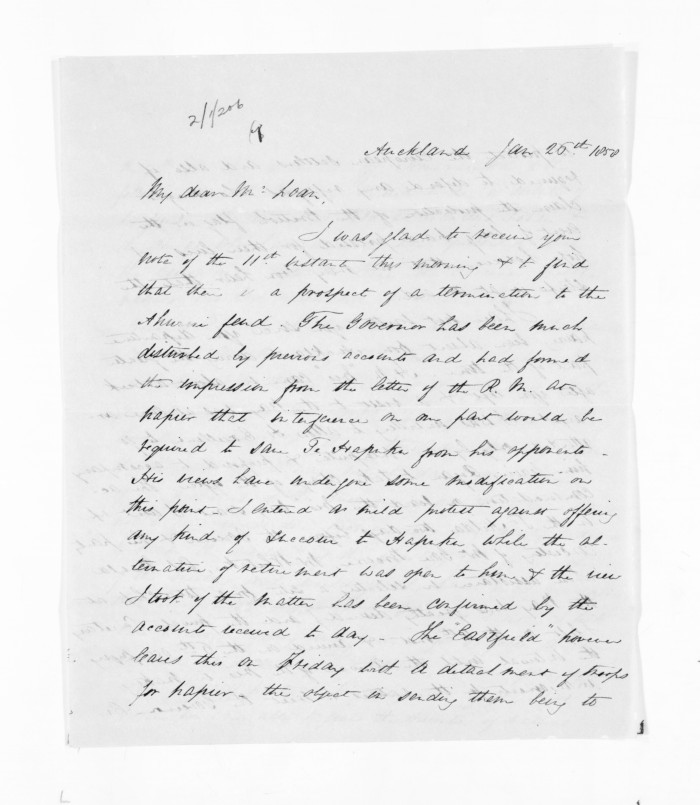 2/1/206
Auckland Jan 26th 1858
My dear Mc Lean,
I was glad to receive your
note of the 11th instant this morning & to find
that there is a prospect of a termination to the
Ahuriri feud. The Governor has been much
disturbed by previous accounts and had formed
the impression from the letter of the R. M. at
Napier that interference on our part would be
required to save Te Hapuku from his opponents -
His views have undergone some modification on
this point - I entered a mild protest against offering
any kind of succour to Hapuku while the al-
ternative of retirement was open to him & the view
I took of the matter has been confirmed by the
accounts received to day - The "Eastfield" however
leaves this on Friday with a detachment of troops
for Napier - the object in sending them being to